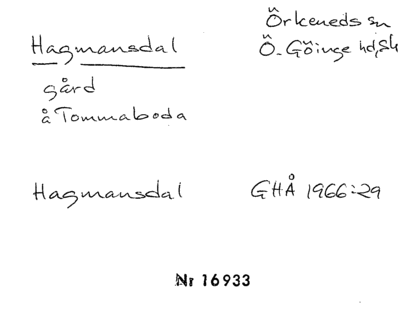 Örkeneds sn
Hagmansdal Ö. Göinge hd, Sk
gård
å Tommaboda
Hagmansdal GHÅ 1966:29
Nr 16933